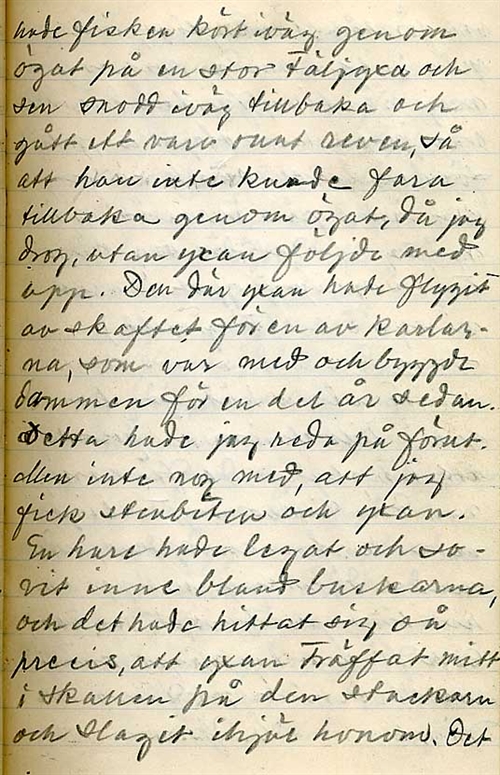 hade fisken kört iväg genom
ögat på en stor täljyxa och
sen snodd iväg tillbaka och
gått ett varv runt reven, så
att han inte kunde fara
tillbaka genom ögat, då jag
drog, utan yxan följde med
upp. Den där yxan hade flygit
av skaftet för en av karlar-
na, som var med och byggde
dammen för en del år sedan.
Detta hade jag reda på förut.
Men inte nog med, att jag
fick stenbiten och yxan.
En hare hade legat och so-
vit inne bland buskarna,
och det hade hittat sig så
precis, att yxan träffat mitt
i skallen på den stackarn
och slagit ihjäl honom. Det